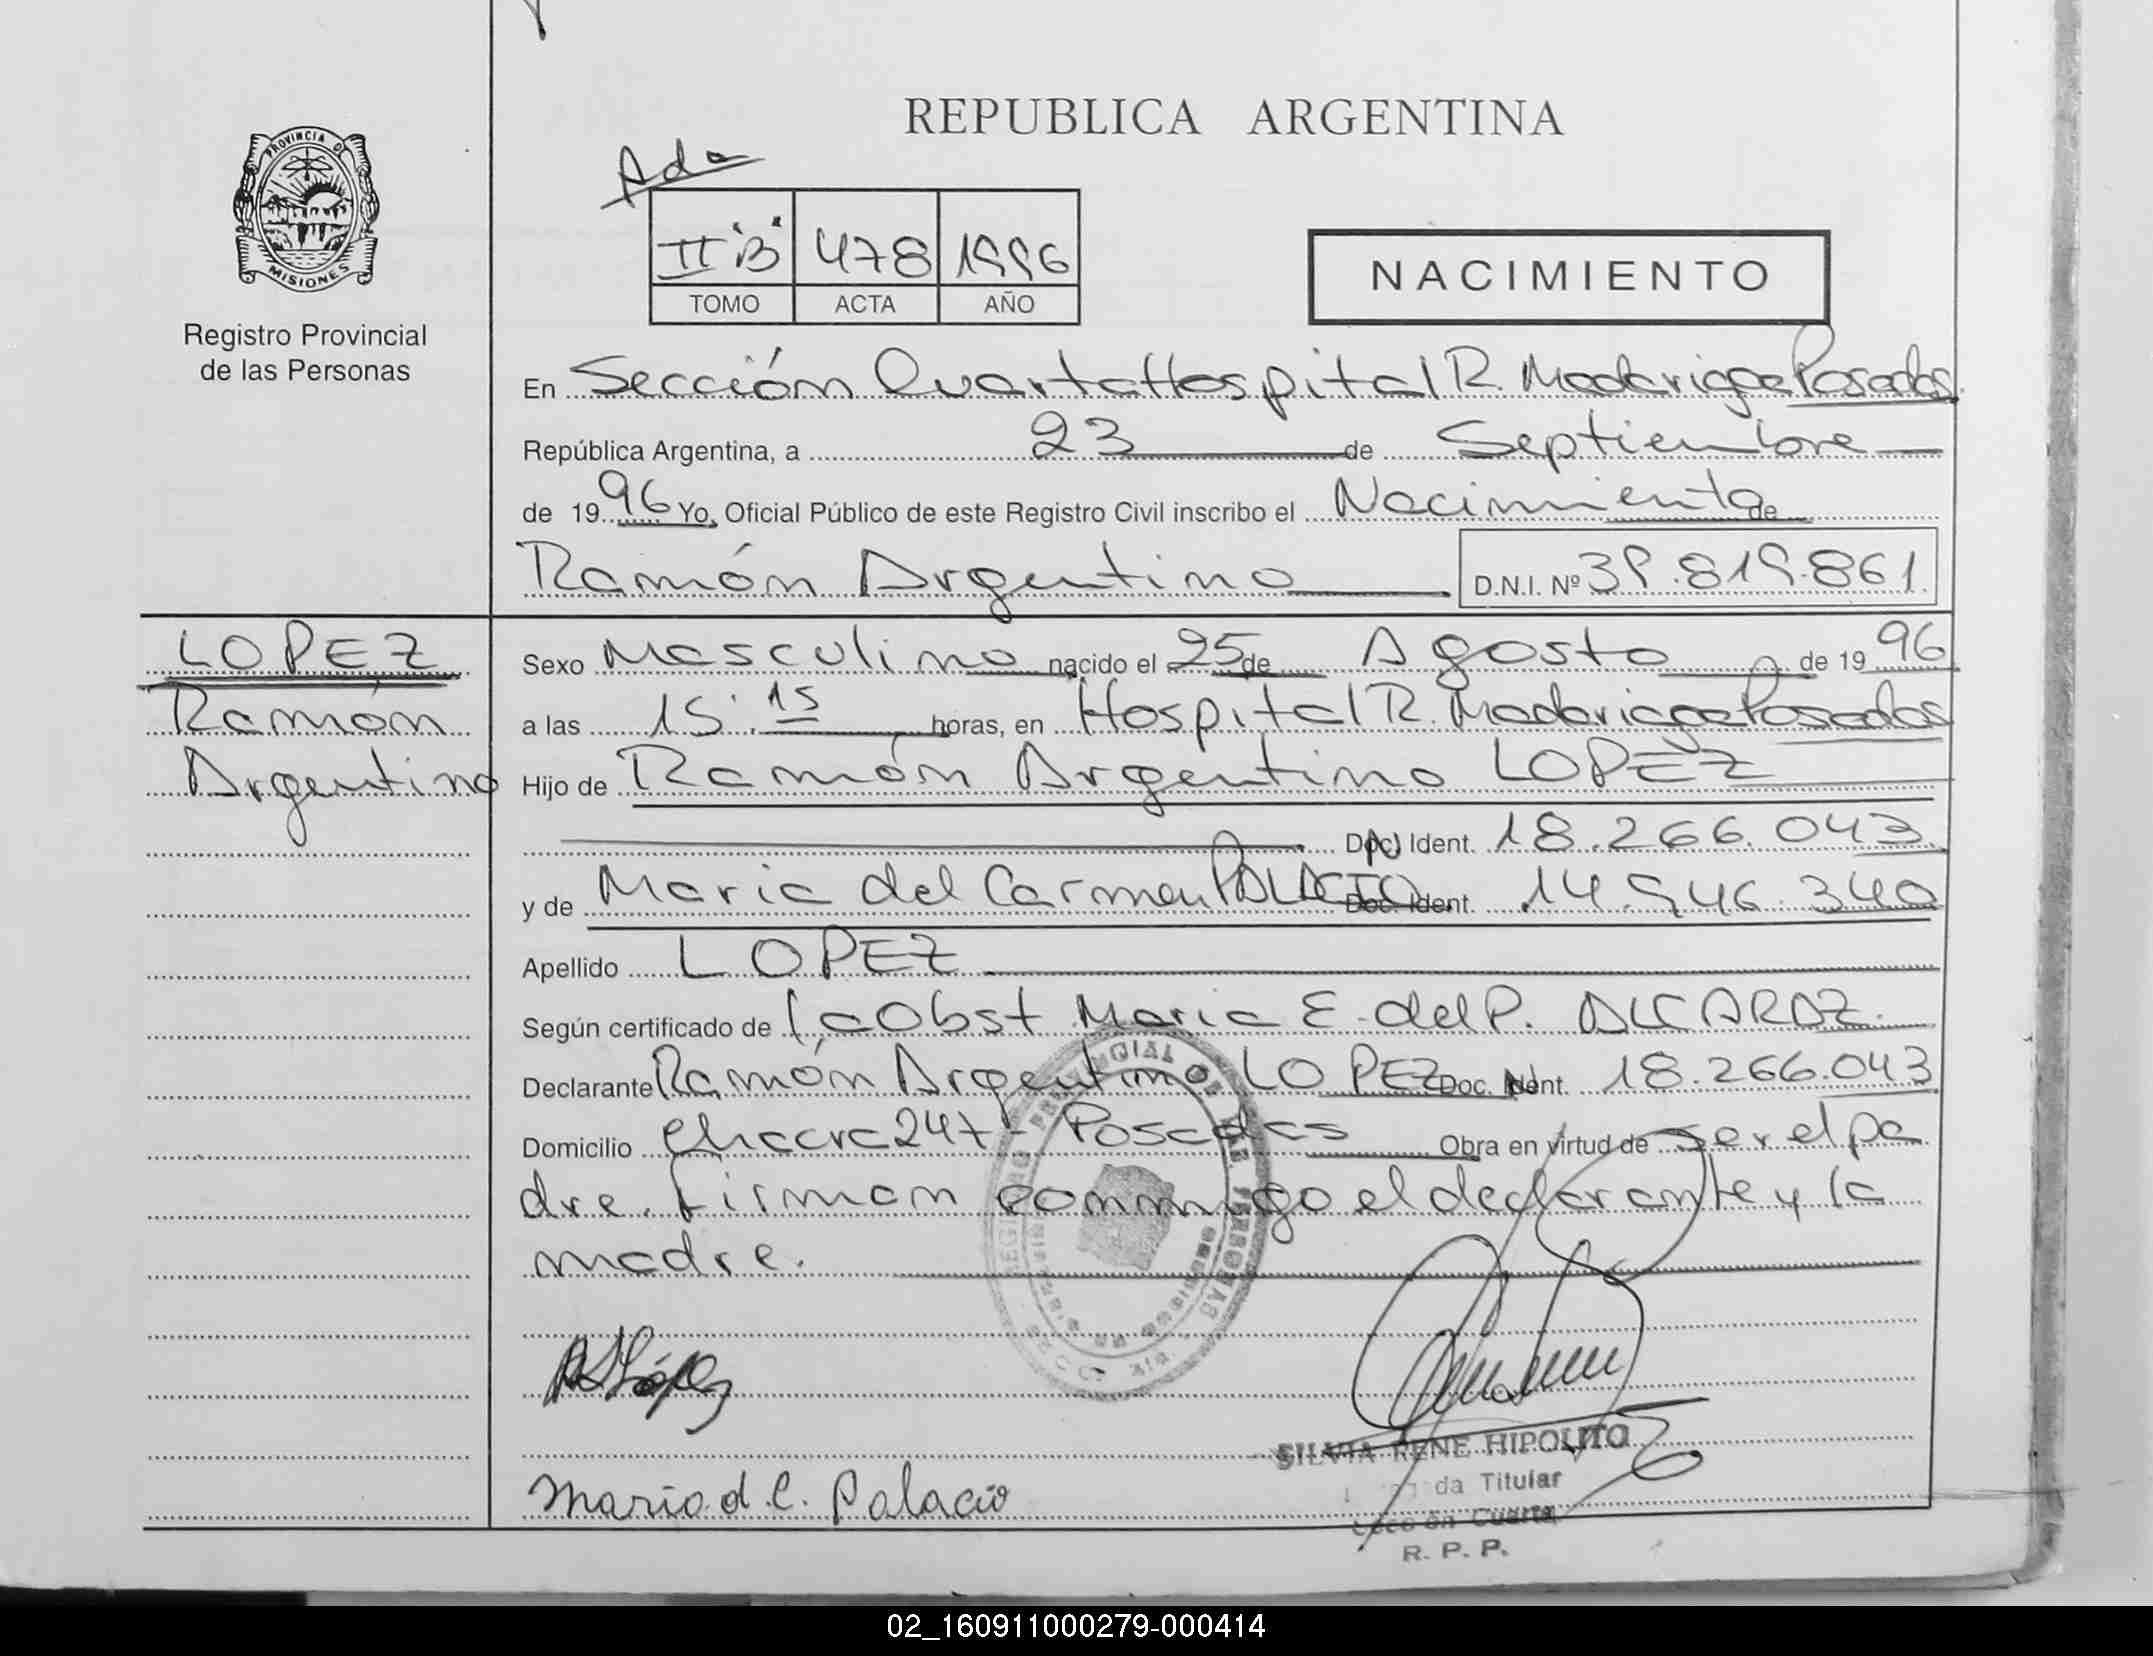 REPUBLICA ARGENTINA
PROVINCIA DE
MISIONES
Registro Provincial
de las Personas
Ada
II "B" 478 1996
TOMO ACTA AÑO
NACIMIENTO
En Sección Cuarta Hospital R. Madariaga Posadas
República Argentina, a 23 de Septiembre
de 1996 Yo, Oficial Público de este Registro Civil inscribo el Nacimiento de
Ramón Argentino D.N.I. Nº 39.819.861.
LOPEZ
Ramón
Argentino
Sexo Masculino nacido el 25 de Agosto de 1996
a las 15:15 horas, en Hospital R. Madariaga Posadas
Hijo de Ramón Argentino LOPEZ
Doc. N Ident. 18.266.043
y de Maria del Carmen PALACIO Doc. Ident. 14.946.340
Apellido LOPEZ
Según certificado de la Obst Maria E. del P. ALCARAZ.
Declarante Ramón Argentino LOPEZ Doc. N Ident. 18.266.043
Domicilio chacra 247 - Posadas Obra en virtud de ser el pa
dre. firman conmigo el declarante y la
madre.
López
Maria d. C. Palacio
SILVIA RENE HIPOLITO
Titular
Cuarta
R. P. P.
02_160911000279-000414